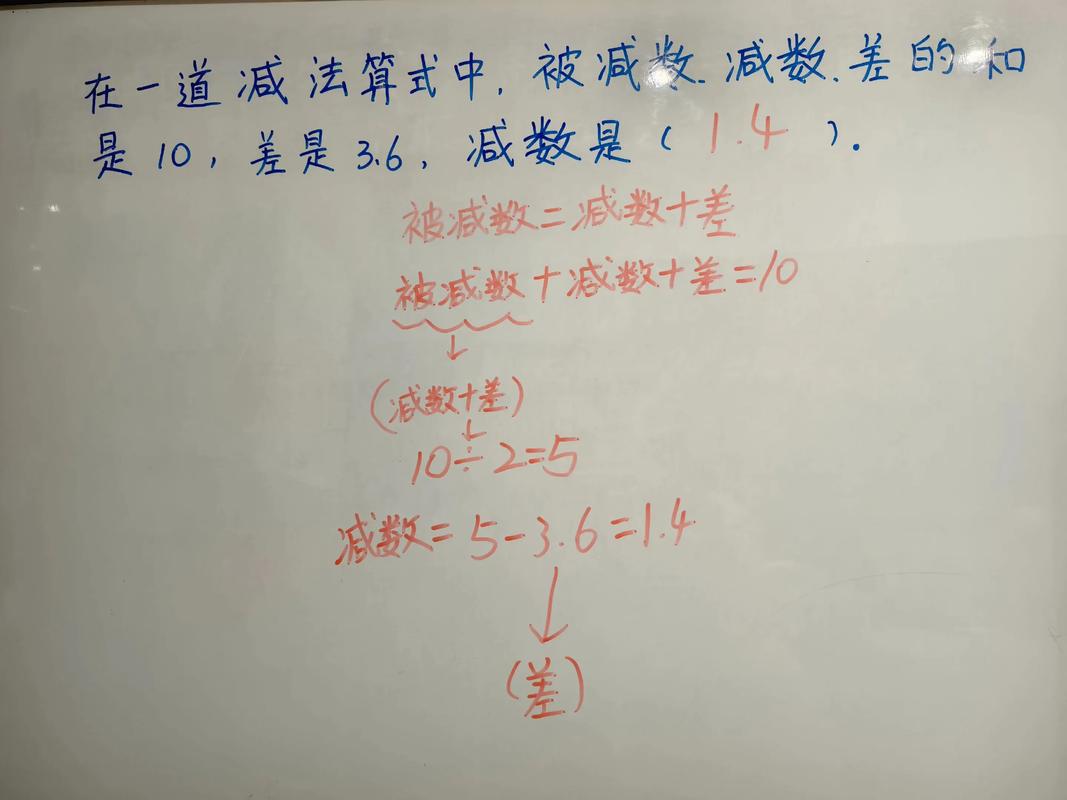 在一道减法算式中,被减数.减数.差的和
是10,差是3.6,减数是(1.4).
被减数=减数+差
被减数+减数+差=10
↓
(减数+差)
↓
10÷2=5
减数=5-3.6=1.4
↓
(差)